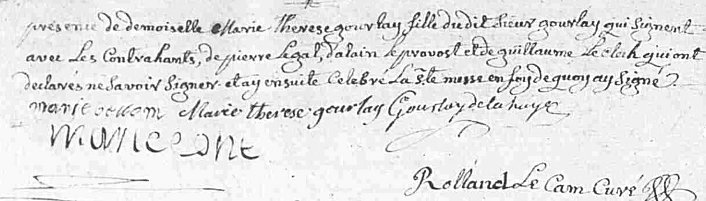 présence de demoiselle Marie Therese gourlay fille dudit sieur gourlay qui signent
avec Les Contrahants, de pierre Legal, d'alain le provost et de guillaume Le clech qui ont
declarés ne savoir signer et ay ensuite Celebré La Ste messe en foy de quoy ay signé.
marie Marie therese gourlay Gourlay de la haye
Rolland Le Cam Curé